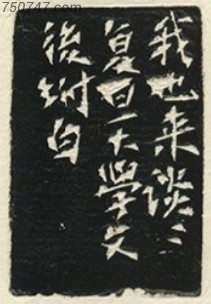 750747.com
我也来谈谈
夏日天學文
後附白